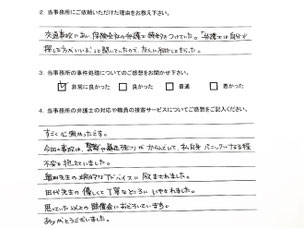 2. 当事務所にご依頼いただけた理由をお教え下さい。
交通事故にあい、保険会社の弁護士を頼もうと思っていた。「弁護士は自分で
探した方がいい。」と聞いていたので、友人に紹介してもらった。
3. 当事務所の事件処理についてのご感想をお聞かせ下さい。
非常に良かった 良かった 普通 悪かった
4. 当事務所の弁護士の対応や職員の接客サービスについてご感想をご記入ください。
すごく心強かったです。
今回の事故は、 がからんでいて、私自身パニックになる程
不安を抱えていました。
先生の アドバイスに救まされました。
田村先生の優しくて丁寧なところに いやされました。
思っていた以上の賠償金におどろいています。
ありがとうございました。